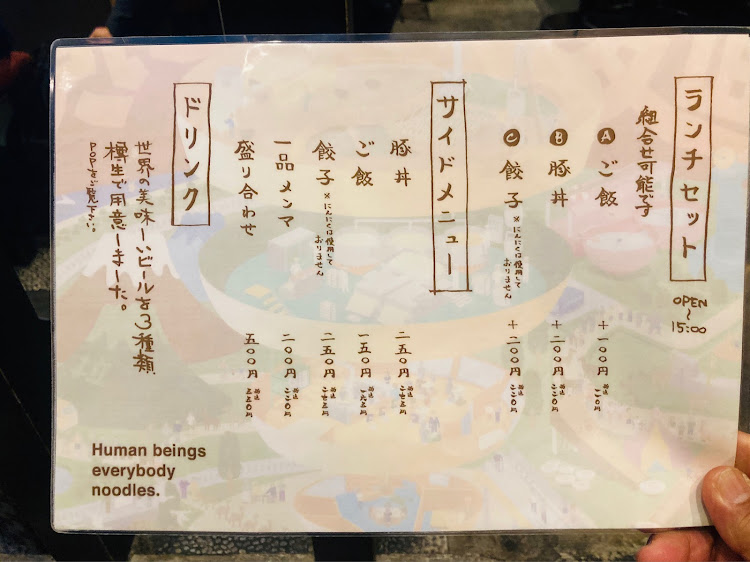 ランチセット
OPEN
～
15:00
組合せ可能です
A ご飯 +一〇〇円
B 豚丼 +二〇〇円 税込二二〇円
C 餃子 ※にんにくは使用しておりません +二〇〇円 税込二二〇円
サイドメニュー
豚丼 二五〇円 税込二七五円
ご飯 一五〇円
餃子 ※にんにくは使用しておりません 二五〇円 税込二七五円
一品メンマ 二〇〇円 税込二二〇円
盛り合わせ 五〇〇円 税込五五〇円
ドリンク
世界の美味しいビールを3種類
樽生で用意しました。
POPをご覧下さい。
Human beings
everybody
noodles.